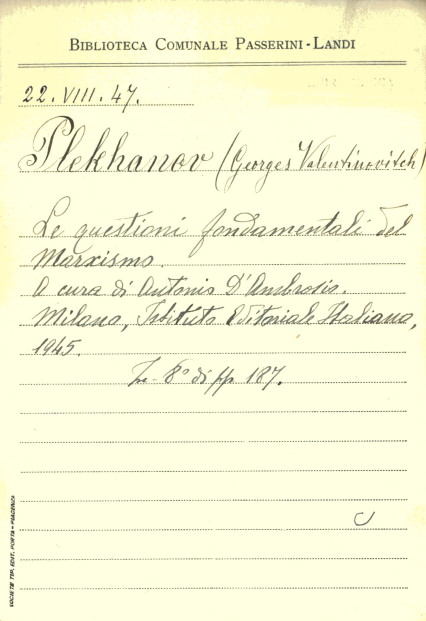 BIBLIOTECA COMUNALE PASSERINI-LANDI
22. VIII. 47.
Plekhanov (Georges Valentinovitch)
Le questioni fondamentali del
Marxismo.
A cura di Antonio D'Ambrosio.
Milano, Istituto Editoriale Italiano,
1945.
In-8° di pp. 187.
SOCIETÀ TIP. EDIT. PORTA - PIACENZA